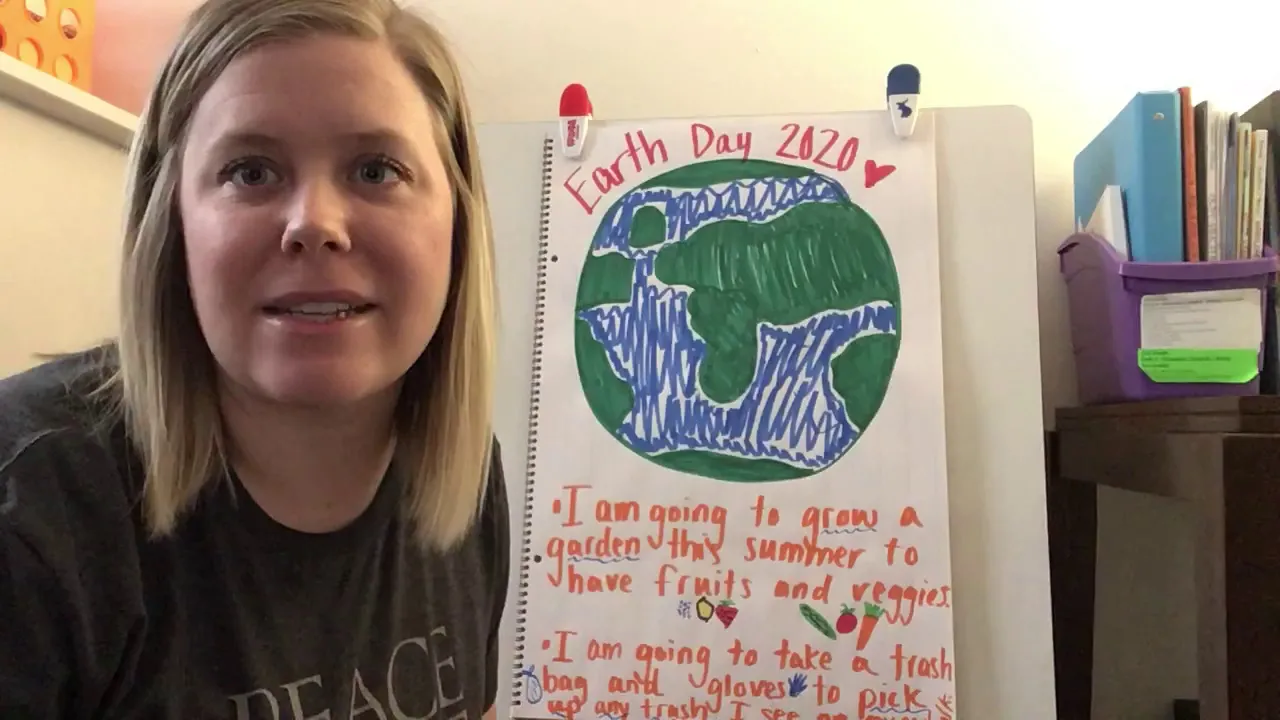 Earth Day 2020
• I am going to grow a
garden this summer to
have fruits and veggies.
• I am going to take a trash
bag and gloves to pick
up any trash I see on
PEACE